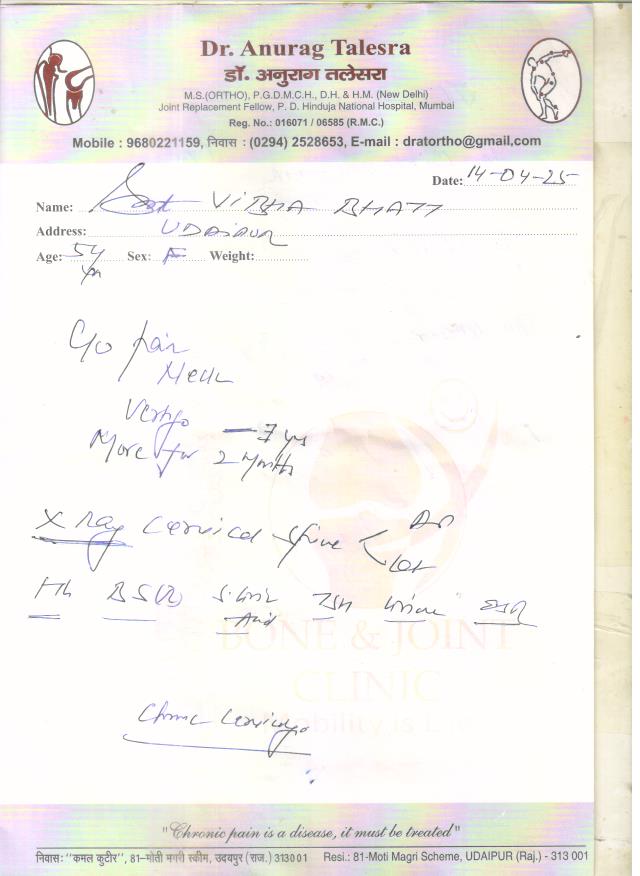 Dr. Anurag Talesra
डॉ. अनुराग तलेसरा
M.S.(ORTHO), P.G.D.M.C.H., D.H. & H.M. (New Delhi)
Joint Replacement Fellow, P. D. Hinduja National Hospital, Mumbai
Reg. No.: 016071 / 06585 (R.M.C.)
Mobile : 9680221159, निवास : (0294) 2528653, E-mail : dratortho@gmail.com
Date: 14-04-25
Name: VIBHA BHATT
Address: UDAIPUR
Age: 54 yrs Sex: F Weight:
C/o pain
Neck
Vertigo — 7 yrs
More for 2 Months
X Ray Cervical Spine < AP
Lat
Hb BS(R) S. Uric TSH Urine ESR
Acid
BONE & JOINT
CLINIC
"Chronic pain is a disease, it must be treated"
निवास: "कमल कुटीर", 81-मोती मगरी स्कीम, उदयपुर (राज.) 313001 Resi.: 81-Moti Magri Scheme, UDAIPUR (Raj.) - 313 001